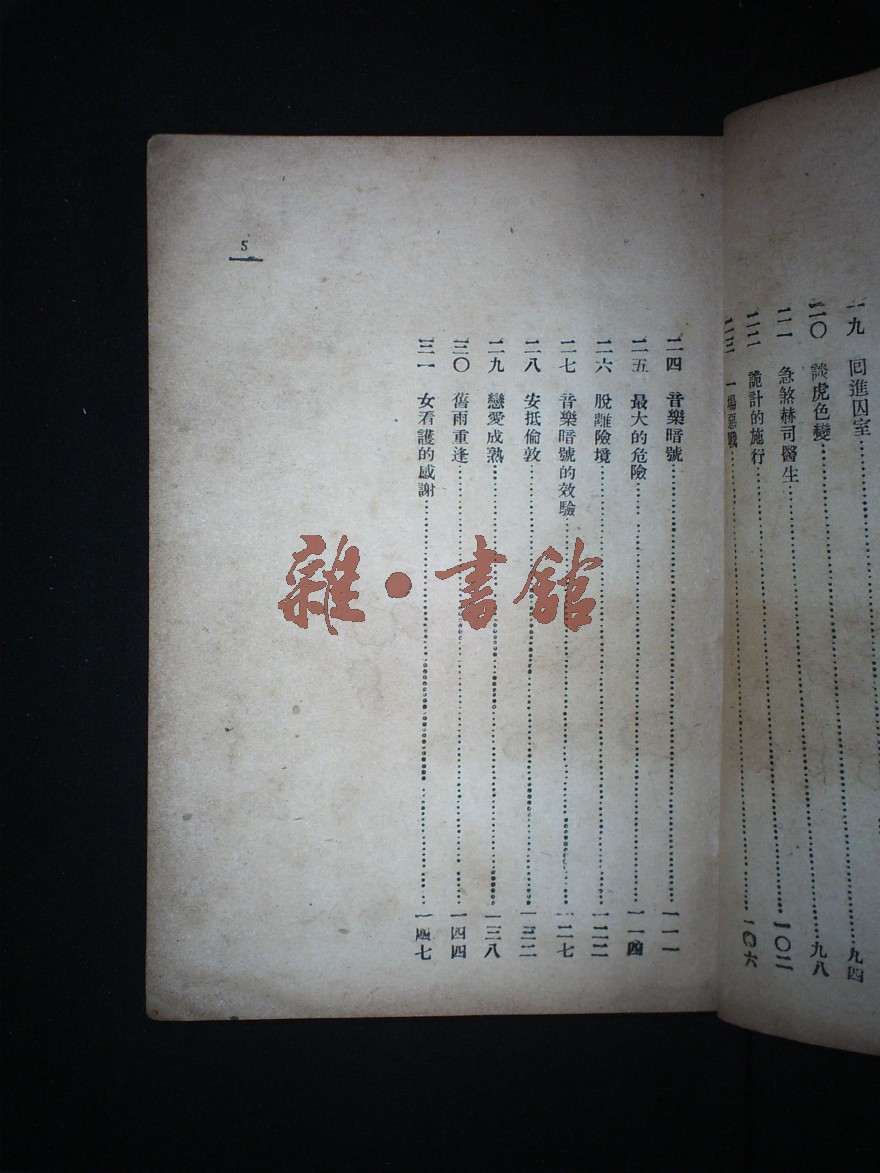 一九 回進囚室
二〇 談虎色變……九四
二一 急煞赫司醫生……九八
二二 詭計的施行……一〇二
二三 一場惡戰……一〇六
二四 音樂暗號……一一一
二五 最大的危險……一一四
二六 脫離險境……一二二
二七 音樂暗號的效驗……一二七
二八 安抵倫敦……一三二
二九 戀愛成熟……一三八
三〇 舊雨重逢……一四四
三一 女看護的感謝……一四七
5
雜·書館